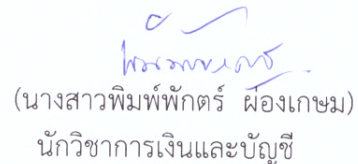 (นางสาวพิมพ์พักตร์ ผ่องเกษม)
นักวิชาการเงินและบัญชี